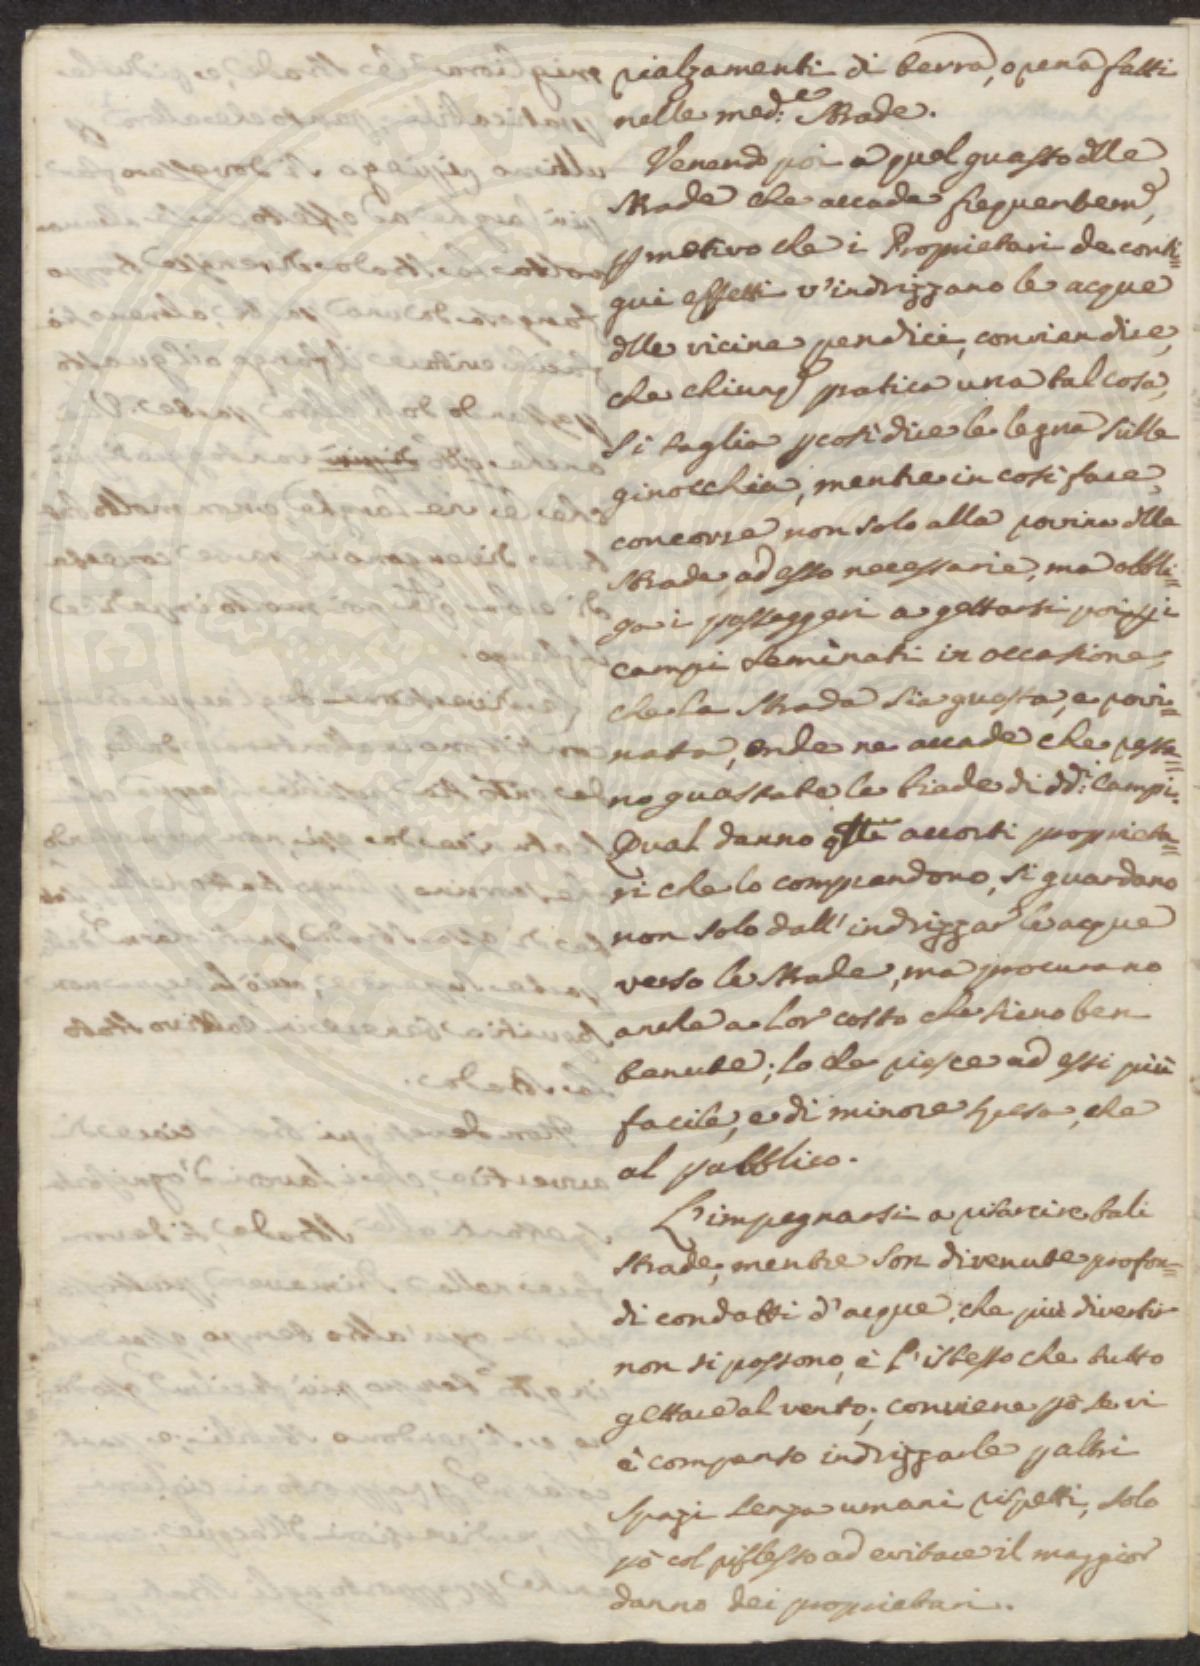 rialzamenti di terra, o rena fatti
nelle med:e Strade.
Venendo poi a quel guasto dlle
Strade che accade frequentem̃,
p motivo che i Proprietari de conti=
gui effetti v'indrizzano le acque
dlle vicine pendici, convien dire,
che chiunq pratica una tal cosa,
si taglia p così dire le legna sulle
ginocchia, mentre in così fare,
concorre non solo alla rovina dlla
Strada ad esso necessaria, ma obbli=
ga i passeggeri a gettarsi poi p i
campi seminati in occasione,
che la Strada sia guasta, e rovi=
nata, onde ne accade che resta=
no guastate le biade di dd:i Campi.
Qual danno accorti proprieta=
ri che lo comprendono, si guardano
non solo dall' indrizzar le acque
verso le Strade, ma procurano
anche a lor costo che sieno ben
tenute; lo che riesce ad essi più
facile, e di minore spesa, che
al pubblico.
L'impegnarsi a risarcire tali
Strade, mentre son divenute profon=
di condotti d'acque, che più divertir
non si possono, è l'istesso che tutto
gettare al vento; conviene pò se vi
è compenso indrizzarle p altri
spazi senza umani rispetti, solo
pò col riflesso ad evitare il maggior
danno dei proprietari.